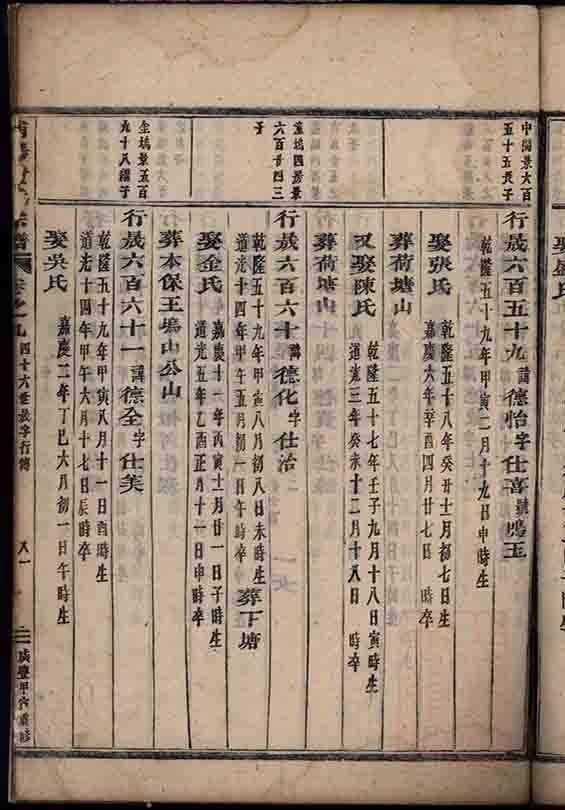 娶
中園景六百
五十五長子
行晟六百五十九 諱 德怡 字 仕喜 號 鳴玉
乾隆五十九年甲寅二月十九日申時生
娶張氏
乾隆五十八年癸丑十月初七日生
嘉慶六年辛酉四月廿七日 時卒
葬荷塘山
又娶陳氏
乾隆五十七年壬子九月十八日寅時生
道光三年癸未十二月十八日 時卒
葬荷塘山
塢四景
六百廿四三
子
行晟六百六十 諱 德化 字 仕治
乾隆五十九年甲寅八月初八日未時生
道光十四年甲午五月初一日午時卒
葬下塘
娶金氏
嘉慶十一年丙寅十一月廿一日子時生
道光五年乙酉正月十一日申時卒
葬本保王塢山公山
金塢景五百
九十八繼子
行晟六百六十一 諱 德全 字 仕美
乾隆五十九年甲寅八月十一日酉時生
道光十四年甲午六月十七日辰時卒
娶吳氏
嘉慶二年丁巳六月初一日午時生
宗譜
卷之九
四十六世晟字行傳